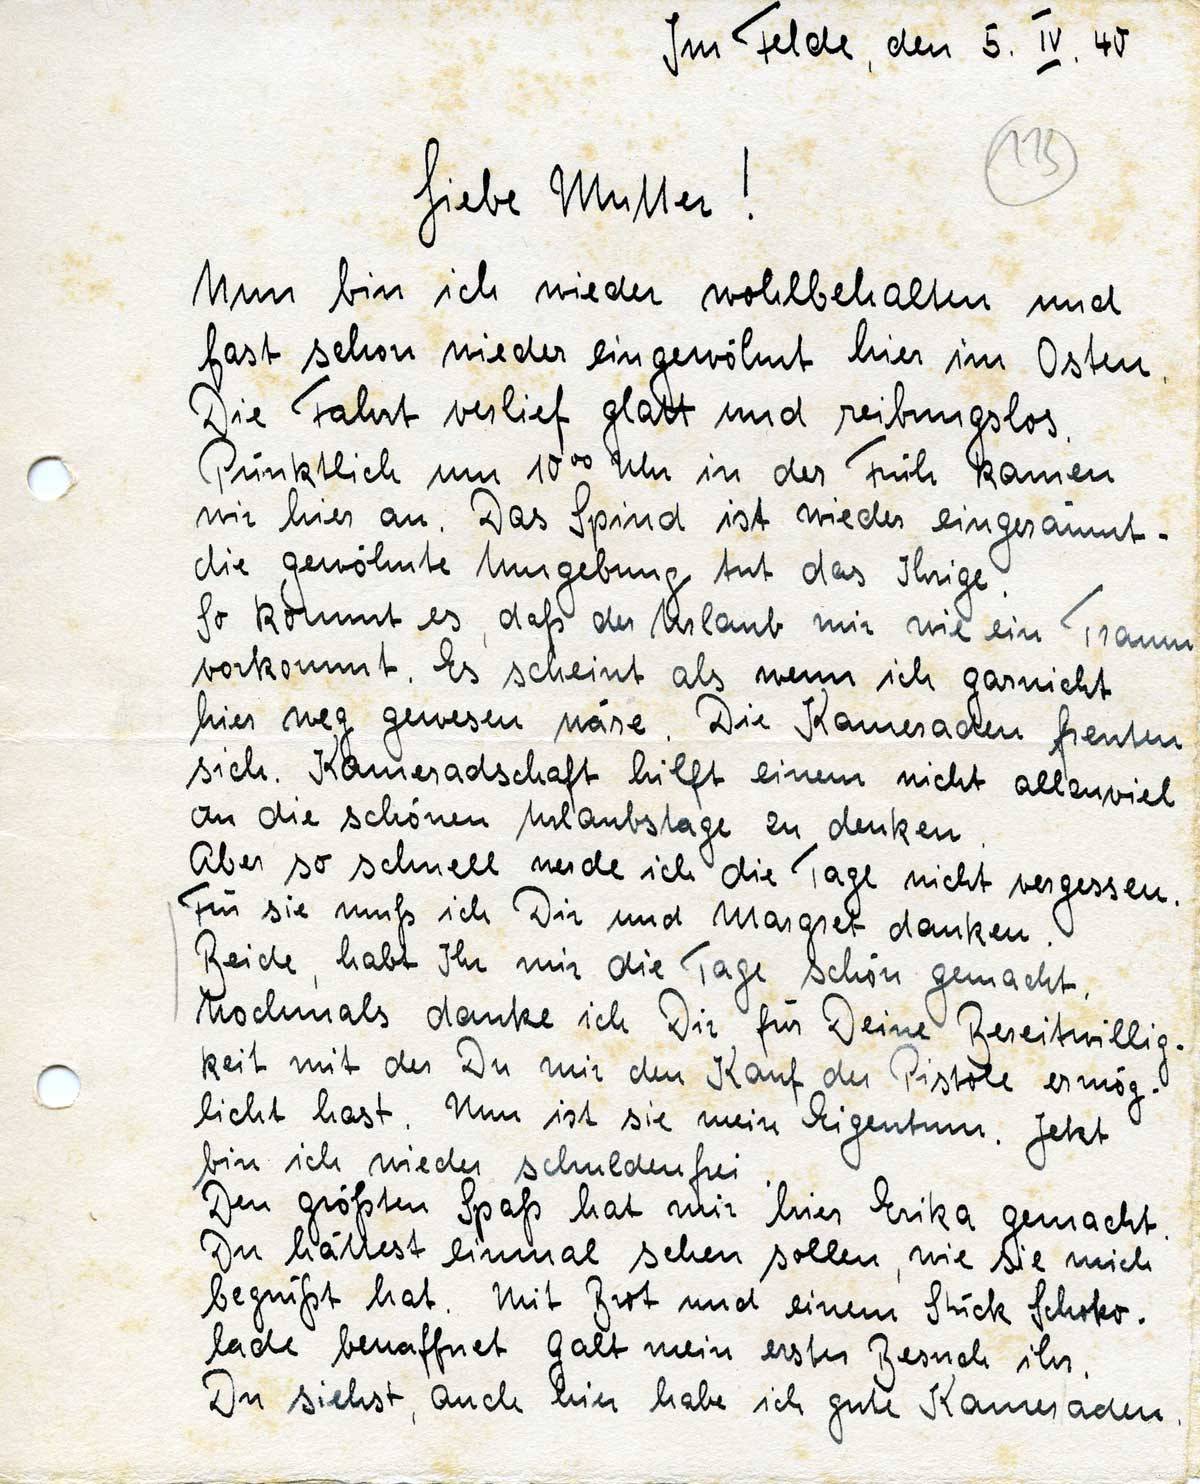 Im Felde, den 5. IV. 40
115
Liebe Mutter!
Nun bin ich wieder wohlbehalten und
fast schon wieder eingewöhnt hier im Osten.
Die Fahrt verlief glatt und reibungslos.
Pünktlich um 10⁰⁰ Uhr in der Früh kamen
wir hier an. Das Spind ist wieder eingeräumt -
die gewöhnte Umgebung tut das Ihrige.
So kommt es, daß der Urlaub mir wie ein Traum
vorkommt. Es scheint als wenn ich garnicht
hier weg gewesen wäre. Die Kameraden freuten
sich. Kameradschaft hilft einem nicht allzuviel
an die schönen Urlaubstage zu denken.
Aber so schnell werde ich die Tage nicht vergessen.
Für sie muß ich Dir und Margret danken.
Beide, habt Ihr mir die Tage schön gemacht.
Nochmals danke ich Dir für Deine Bereitwillig-
keit mit der Du mir den Kauf der Pistole ermög-
licht hast. Nun ist sie mein Eigentum. Jetzt
bin ich wieder schuldenfrei.
Den größten Spaß hat mir hier Erika gemacht.
Du hättest einmal sehen sollen, wie sie mich
begrüßt hat. Mit Brot und einem Stück Schoko-
lade bewaffnet galt mein erster Besuch ihr.
Du siehst, auch hier habe ich gute Kameraden.